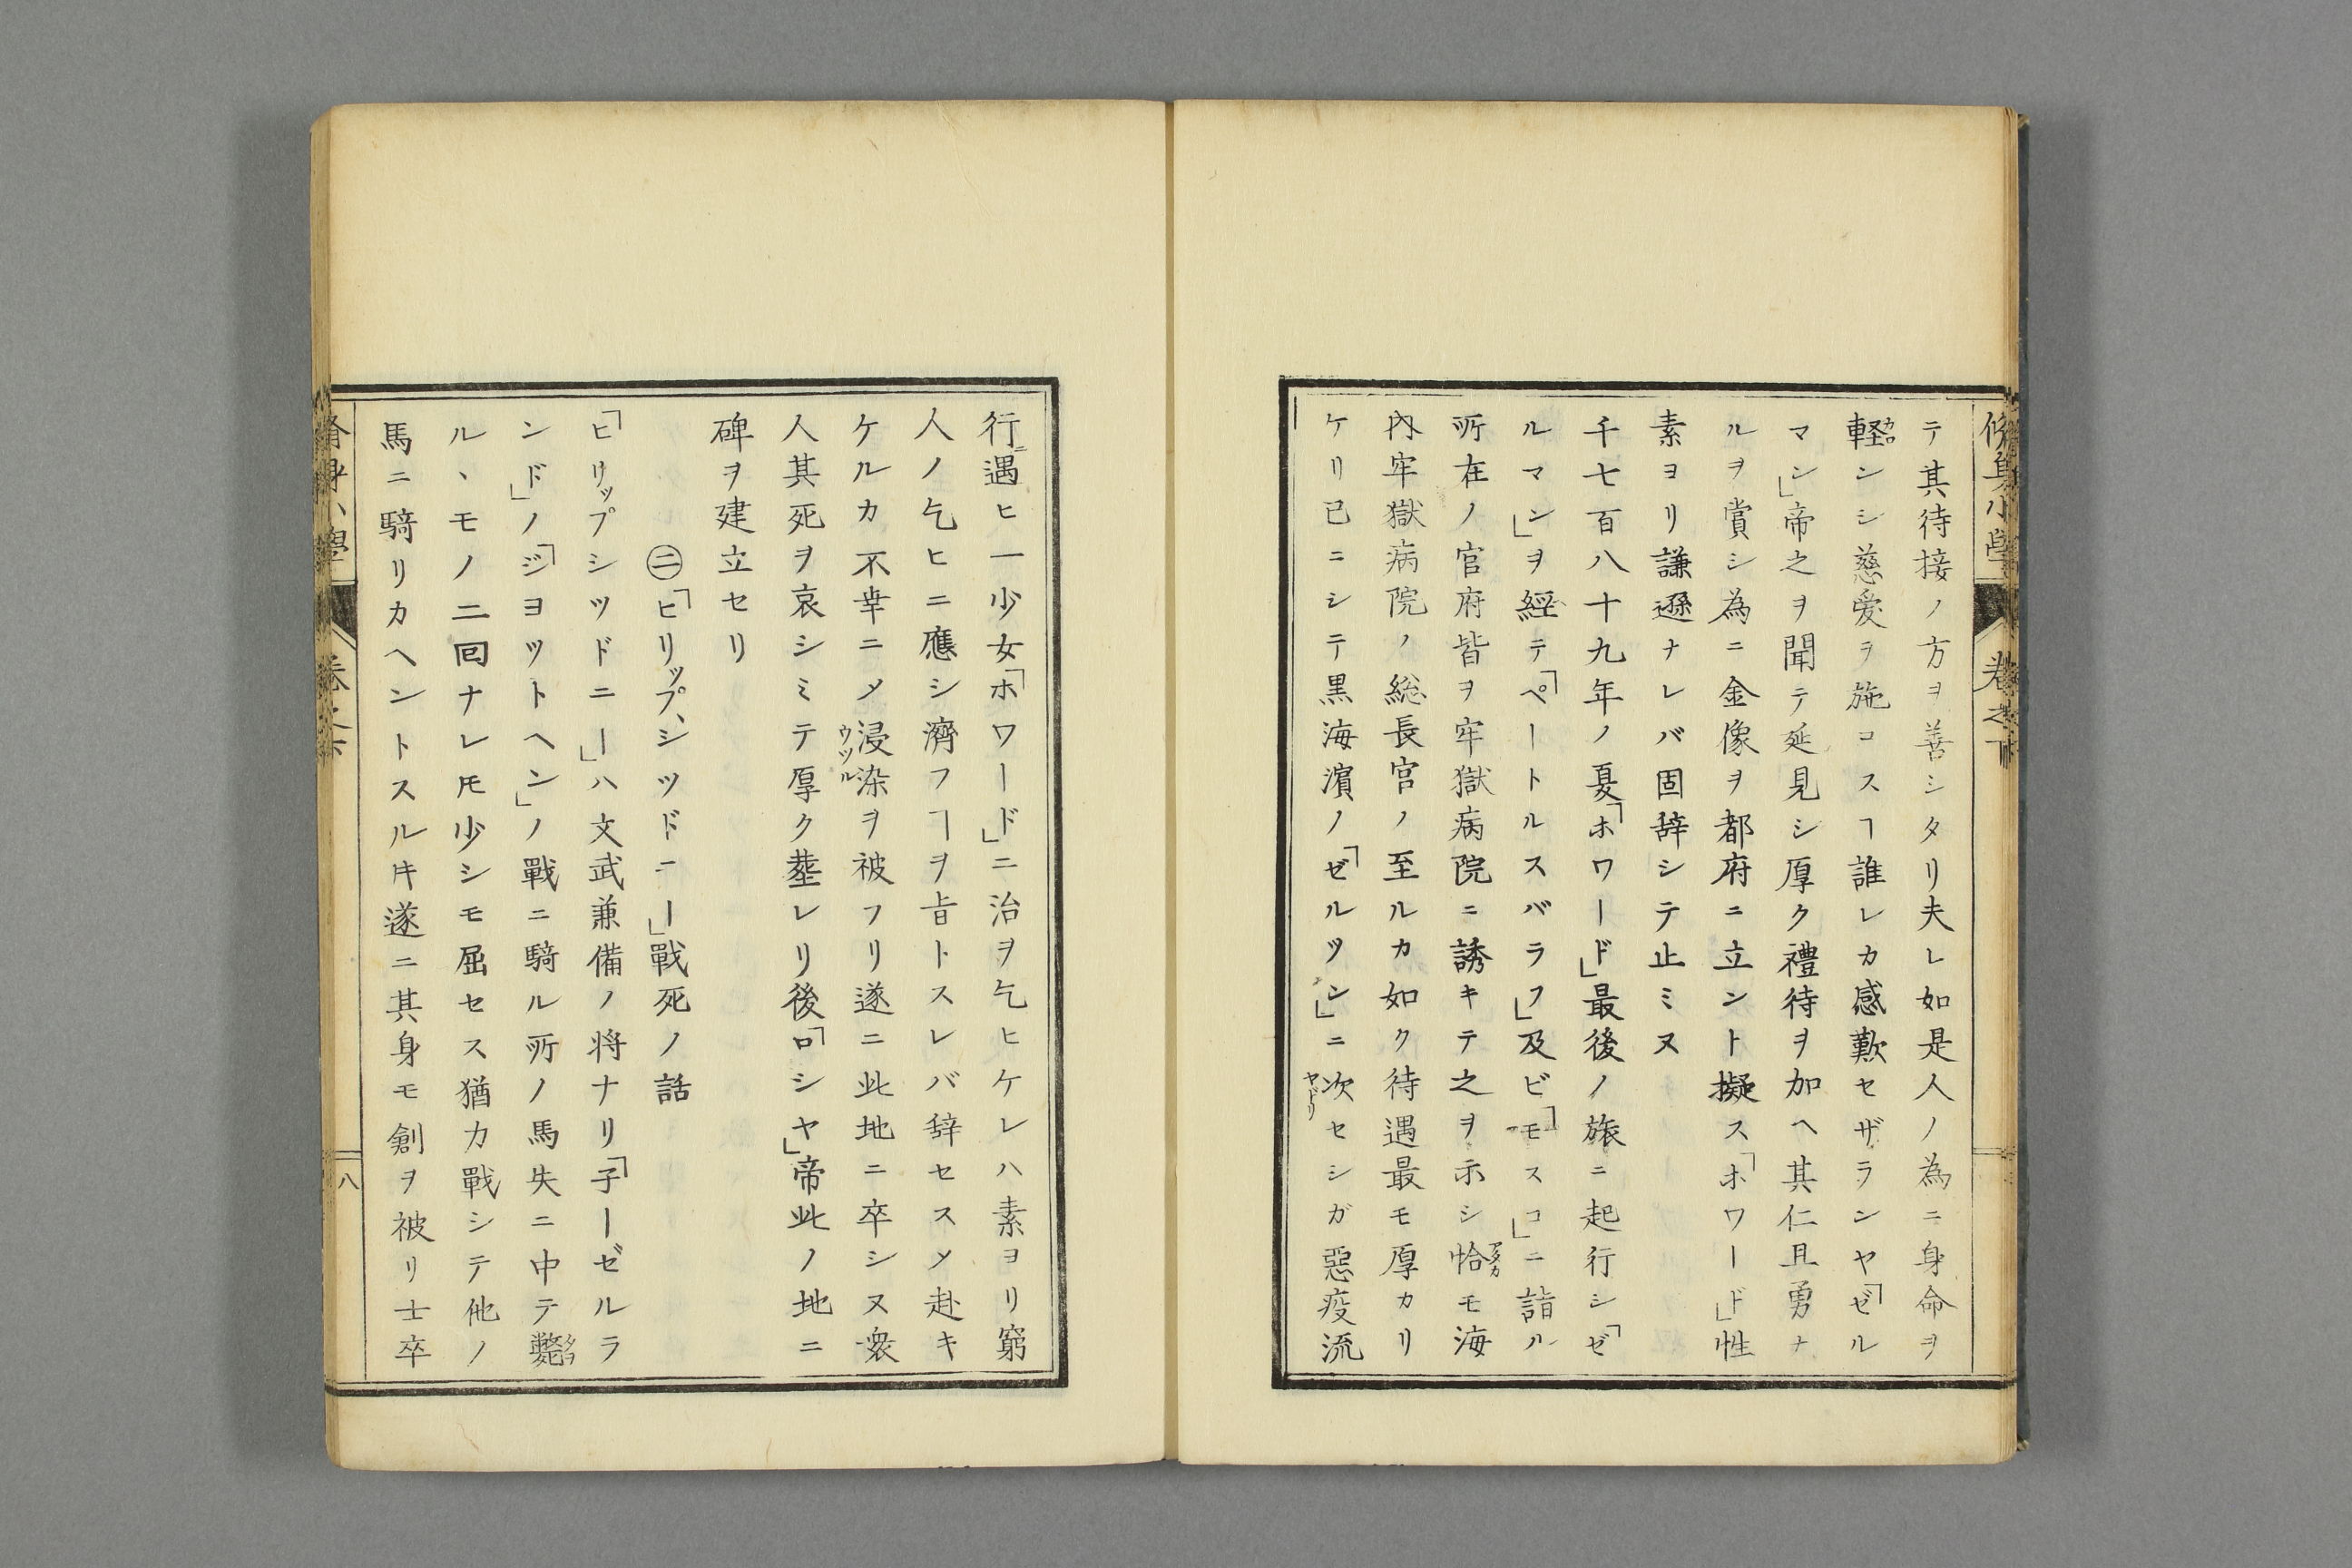 脩身小學 卷之下
テ其待接ノ方ヲ善シタリ夫レ如是人ノ為ニ身命ヲ
軽ンシ慈愛ヲ施コスヿ誰レカ感歎セザランヤ「ゼル
マン」帝之ヲ聞テ延見シ厚ク禮待ヲ加ヘ其仁且勇ナ
ルヲ賞シ為ニ金像ヲ都府ニ立ント擬ス「ホワード」性
素ヨリ謙遜ナレバ固辞シテ止ミヌ
千七百八十九年ノ夏「ホワード」最後ノ旅ニ起行シ「ゼ
ルマン」ヲ經テ「ペートルスバラフ」及ビ「モスコ」ニ詣ル
所在ノ官府皆ヲ牢獄病院ニ誘キテ之ヲ示シ恰モ海
内牢獄病院ノ総長官ノ至ルカ如ク待遇最モ厚カリ
ケリ已ニシテ黒海濱ノ「ゼルツン」ニ次セシガ惡疫流
行遇ヒ一少女「ホワード」ニ治ヲ乞ヒケレハ素ヨリ窮
人ノ乞ヒニ應シ濟フヿヲ旨トスレバ辞セスメ赴キ
ケルカ不幸ニメ浸染ヲ被フリ遂ニ此地ニ卒シヌ衆
人其死ヲ哀シミテ厚ク塟レリ後「ロシヤ」帝此ノ地ニ
碑ヲ建立セリ
㊁「ヒリップ、シツドニー」戰死ノ話
「ヒリップシツドニー」ハ文武兼備ノ将ナリ「子ーゼルラ
ンド」ノ「ジヨツトヘン」ノ戰ニ騎ル所ノ馬失ニ中テ斃
ルヽモノ二回ナレ𪜈少シモ屈セス猶カ戰シテ他ノ
馬ニ騎リカヘントスル𪜀遂ニ其身モ創ヲ被リ士卒
脩身小學 卷之下 八